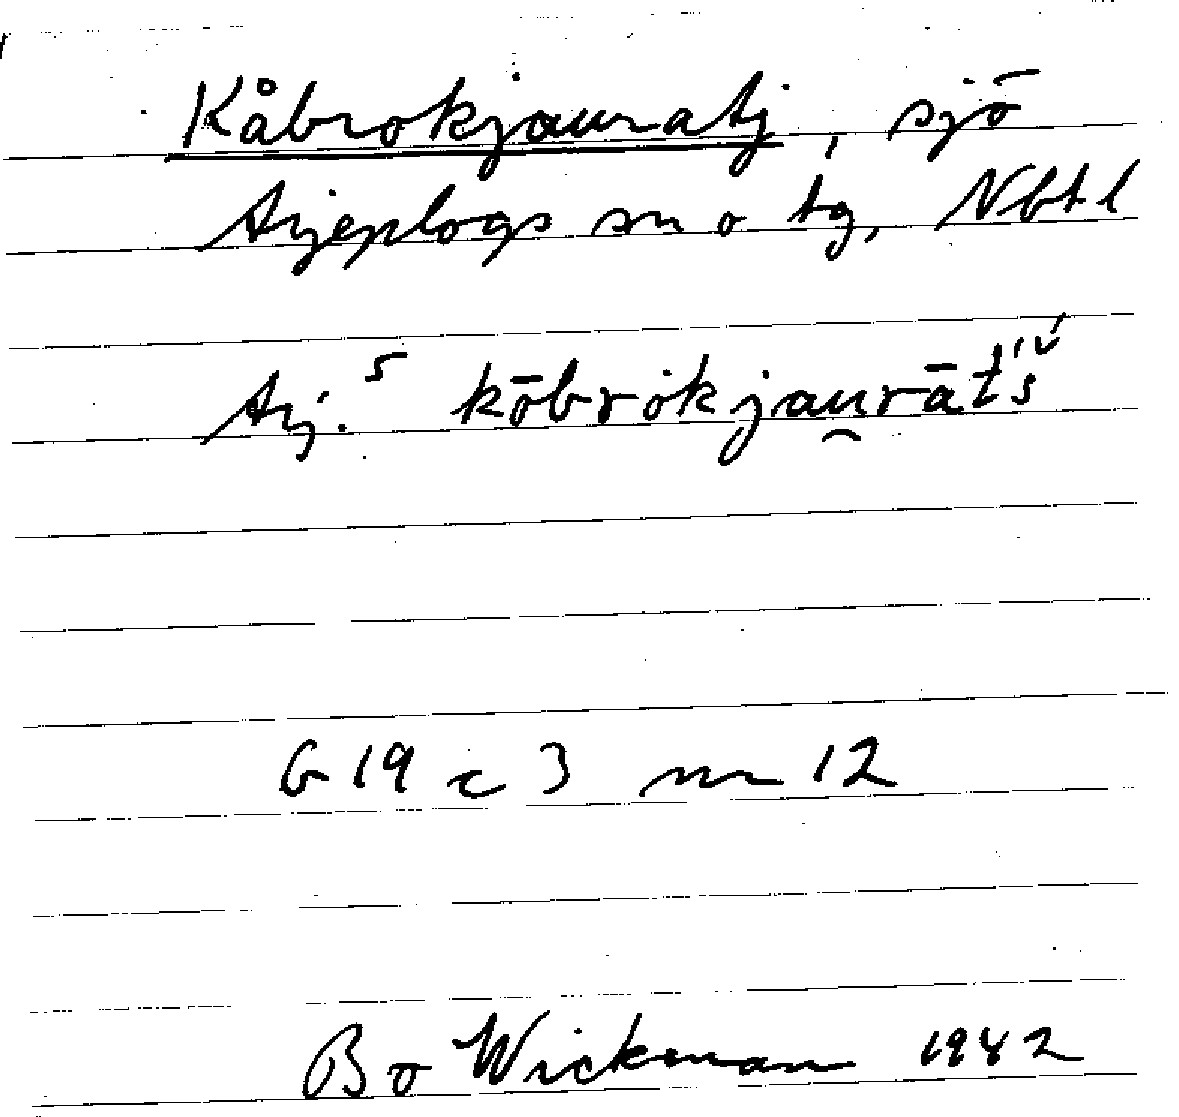 Kåbrokjauratj, sjö
Arjeplogs sn o tg, Nbt l
Arj. 5 kōbrȯkjau̯rāt́ś̌
G 19 c 3 nr 12
Bo Wickman 1942